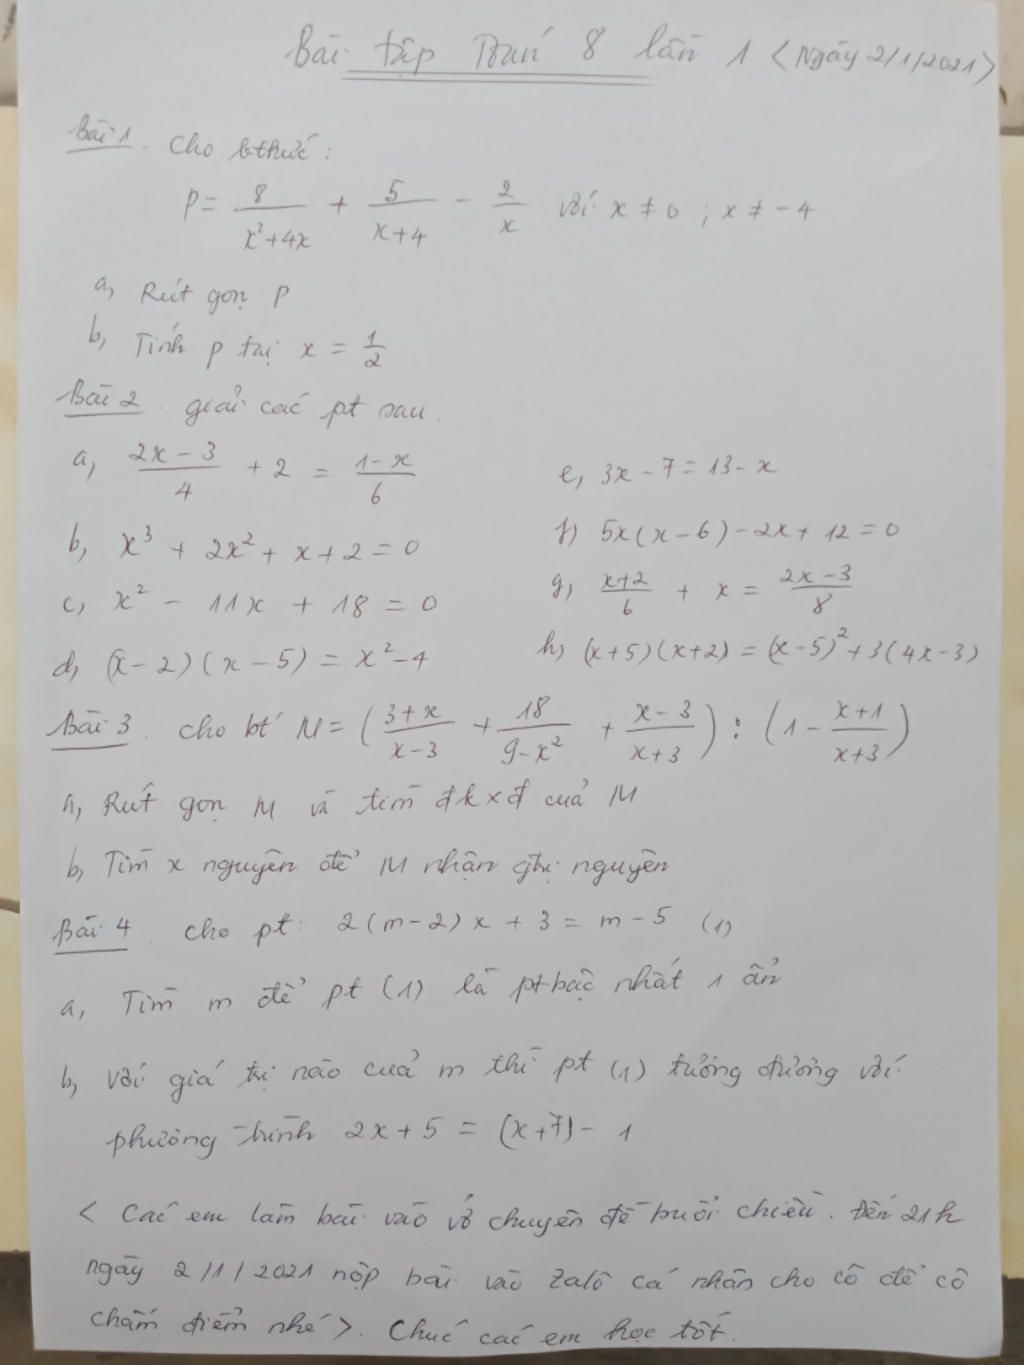 Bài tập Toán 8 lần 1 <Ngày 2/1/2021>
Bài 1. Cho bthức:
P = 8/(x²+4x) + 5/(x+4) - 2/x với x ≠ 0 ; x ≠ -4
a, Rút gọn P
b, Tính P tại x = 1/2
Bài 2. giải các pt sau.
a, (2x-3)/4 + 2 = (1-x)/6
b, x³ + 2x² + x + 2 = 0
c, x² - 11x + 18 = 0
d, (x-2)(x-5) = x²-4
e, 3x - 7 = 13 - x
f) 5x(x-6) - 2x + 12 = 0
g, (x+2)/6 + x = (2x-3)/8
h, (x+5)(x+2) = (x-5)² + 3(4x-3)
Bài 3. cho bt M = ((3+x)/(x-3) + 18/(9-x²) + (x-3)/(x+3)) : (1 - (x+1)/(x+3))
a, Rút gọn M và tìm đkxđ của M
b, Tìm x nguyên để M nhận gtrị nguyên
Bài 4. cho pt: 2(m-2)x + 3 = m - 5 (1)
a, Tìm m để pt (1) là pt bậc nhất 1 ẩn
b, Với giá trị nào của m thì pt (1) tương đương với
phương trình 2x + 5 = (x+7) - 1
< Các em làm bài vào vở chuyên đề buổi chiều. Đến 21h
ngày 2/1/2021 nộp bài vào Zalô cá nhân cho cô để cô
chấm điểm nhé>. Chúc các em học tốt.